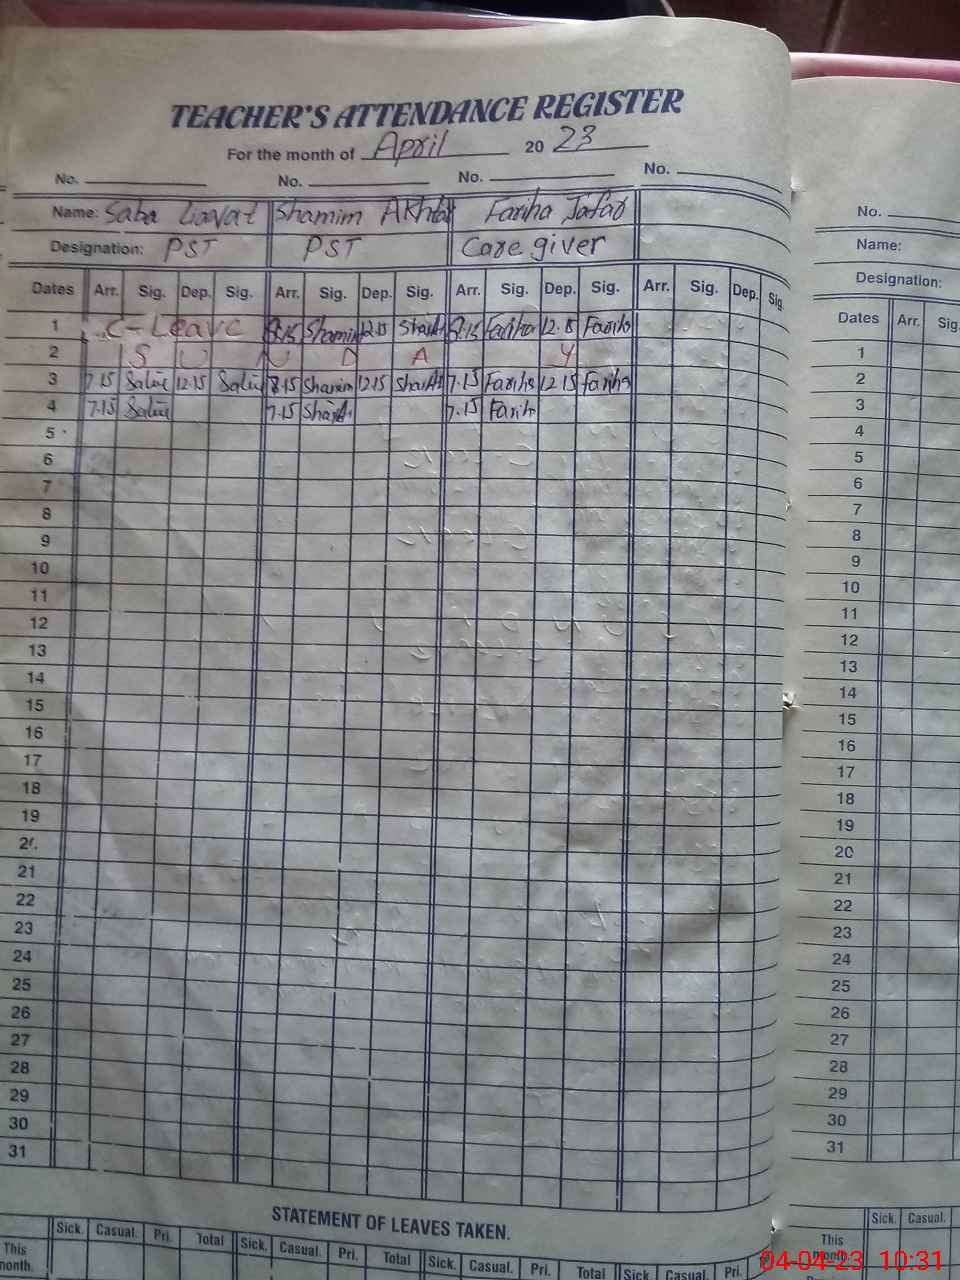 TEACHER'S ATTENDANCE REGISTER
For the month of April 2023
No. No. No. No.
Name: Saba Liaqat Shamim Akhtar Fariha Jafar
Designation: PST PST Care giver
Dates Arr. Sig. Dep. Sig. Arr. Sig. Dep. Sig. Arr. Sig. Dep. Sig. Arr. Sig. Dep. Sig.
1 C-Leave 8.15 Shamim 12.15 8.15 Fariha 12.15 Fariha
2 S U N D A Y
3 7.15 12.15 8.15 Shamim 12.15 7.15 Fariha 12.15 Fariha
4 7.15 7.15 7.15 Farih
5
6
7
8
9
10
11
12
13
14
15
16
17
18
19
20
21
22
23
24
25
26
27
28
29
30
31
STATEMENT OF LEAVES TAKEN.
Sick. Casual. Pri. Total Sick. Casual. Pri. Total Sick. Casual. Pri. Total Sick Casual. Pri.
This month.
No.
Name:
Designation:
Dates Arr. Sig.
1
2
3
4
5
6
7
8
9
10
11
12
13
14
15
16
17
18
19
20
21
22
23
24
25
26
27
28
29
30
31
Sick. Casual.
This month.
04-04-23 10:31